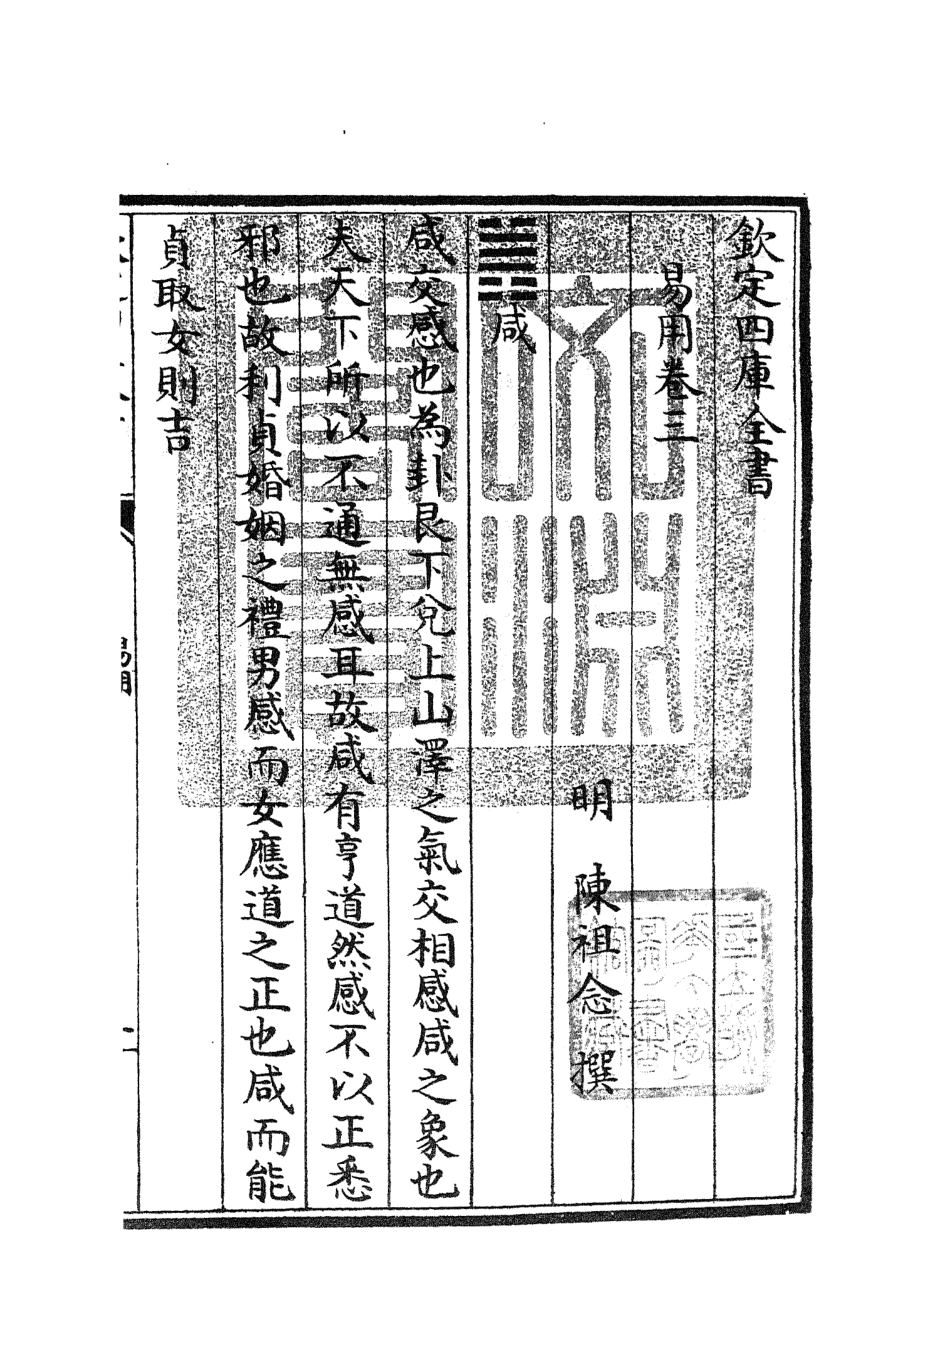 欽定四庫全書
易用卷三
明 陳祖念 撰
䷞咸
咸交感也為卦艮下兌上山澤之氣交相感咸之象也
夫天下所以不通無感耳故咸有亨道然感不以正悉
邪也故利貞婚姻之禮男感而女應道之正也咸而能
貞取女則吉